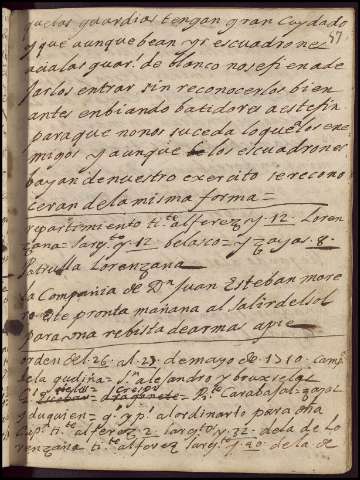 que las guardias tengan gran Cuydado
y que aunque bean yr escuadrones
acia las guar.s de blanco no se fien a de
jarlos entrar sin reconocerlos bien
antes enbiando batidores a este fin
para que no nos suceda lo que a los ene
migos y aunque los escuadrones
bayan de nuestro exercito se recono
ceran de la misma forma=
repartimiento ti.te alferez y 12 Loren
zana= sarg.to y 12 belasco= y zayas 8.
Patrulla Lorenzana
la Compañia de D.n Juan Esteban more
ro este pronta mañana al salir del sol
para una rebista de armas a pie
orden del 26 al 27 de mayo de 1710 camp.o
de la gudiña= s.n alejandro y bruxselas
Carabajal= zayas
y duquien= q.e y p.l a lo rdinario para ota
Cap.n ti.te alferez 2 sarg.tos y 32 de la de lo
renzana ti.te alferez sarg.to y 20 de la de
57